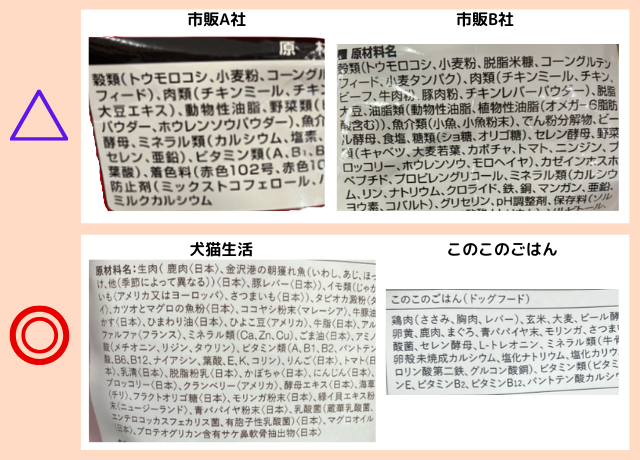 市販A社
原 材
穀類(トウモロコシ、小麦粉、コーングル
フィード)、肉類(チキンミール、チキン
大豆エキス)、動物性油脂、野菜類(
パウダー、ホウレンソウパウダー)、魚介
酵母、ミネラル類(カルシウム、塩素、
セレン、亜鉛)、ビタミン類(A、B1、B
葉酸)、着色料(赤色102号、赤色10
防止剤(ミックストコフェロール、
ミルクカルシウム
市販B社
種 原材料名
穀類(トウモロコシ、小麦粉、脱脂米糠、コーングルテン
フィード、小麦タンパク)、肉類(チキンミール、チキン、
ビーフ、牛肉粉、豚肉粉、チキンレバーパウダー)、脱脂
大豆、油脂類(動物性油脂、植物性油脂(オメガ-6脂肪
酸含む))、魚介類(小魚、小魚粉末)、でん粉分解物、ビー
ル酵母、食塩、糖類(ショ糖、オリゴ糖)、セレン酵母、野菜
(キャベツ、大麦若葉、カボチャ、トマト、ニンジン、ブ
ロッコリー、ホウレンソウ、モロヘイヤ)、カゼインホスホ
ペプチド、プロピレングリコール、ミネラル類(カルシウ
ム、リン、ナトリウム、クロライド、鉄、銅、マンガン、亜鉛、
ヨウ素、コバルト)、グリセリン、pH調整剤、保存料(ソル
犬猫生活
原材料名:生肉(鹿肉〈日本〉、金沢港の朝獲れ魚(いわし、あじ、ほっ
け、他(季節によって異なる))〈日本〉)、豚レバー〈日本〉)、イモ類(じゃが
いも〈アメリカ又はヨーロッパ〉、さつまいも〈日本〉)、タピオカ澱粉〈タ
イ〉、カツオとマグロの魚粉〈日本〉、ココヤシ粉末〈マレーシア〉、牛豚油
かす〈日本〉、ひまわり油〈日本〉、ひよこ豆〈アメリカ〉、牛脂〈日本〉、アル
ファルファ〈フランス〉、ミネラル類(Ca,Zn,Cu)、ごま油〈日本〉、アミノ
酸(メチオニン、リジン、タウリン)、ビタミン類(A、B1、B2、パントテン
酸、B6、B12、ナイアシン、葉酸、E、K、コリン)、りんご〈日本〉、トマト〈日
本〉、乳清〈日本〉、脱脂粉乳〈日本〉、かぼちゃ〈日本〉、にんじん〈日本〉、
ブロッコリー〈日本〉、クランベリー〈アメリカ〉、酵母エキス〈日本〉、海草
〈チリ〉、フラクトオリゴ糖〈日本〉、モリンガ粉末〈日本〉、緑イ貝エキス粉
末〈ニュージーランド〉、青パパイヤ粉末〈日本〉、乳酸菌(殺菌乳酸菌、
エンテロコッカスフェカリス菌、有胞子性乳酸菌)〈日本〉、マグロオイル
〈日本〉、プロテオグリカン含有サケ鼻軟骨抽出物〈日本〉
このこのごはん
このこのごはん(ドッグフード)
鶏肉(ささみ、胸肉、レバー)、玄米、大麦、ビール酵
卵黄、鹿肉、まぐろ、青パパイヤ末、モリンガ、さつま
酸菌、セレン酵母、L-トレオニン、ミネラル類(牛骨
卵殻未焼成カルシウム、塩化ナトリウム、塩化カリウ
ロリン酸第二鉄、グルコン酸銅)、ビタミン類(ビタミ
ンE、ビタミンB2、ビタミンB12、パントテン酸カルシウ